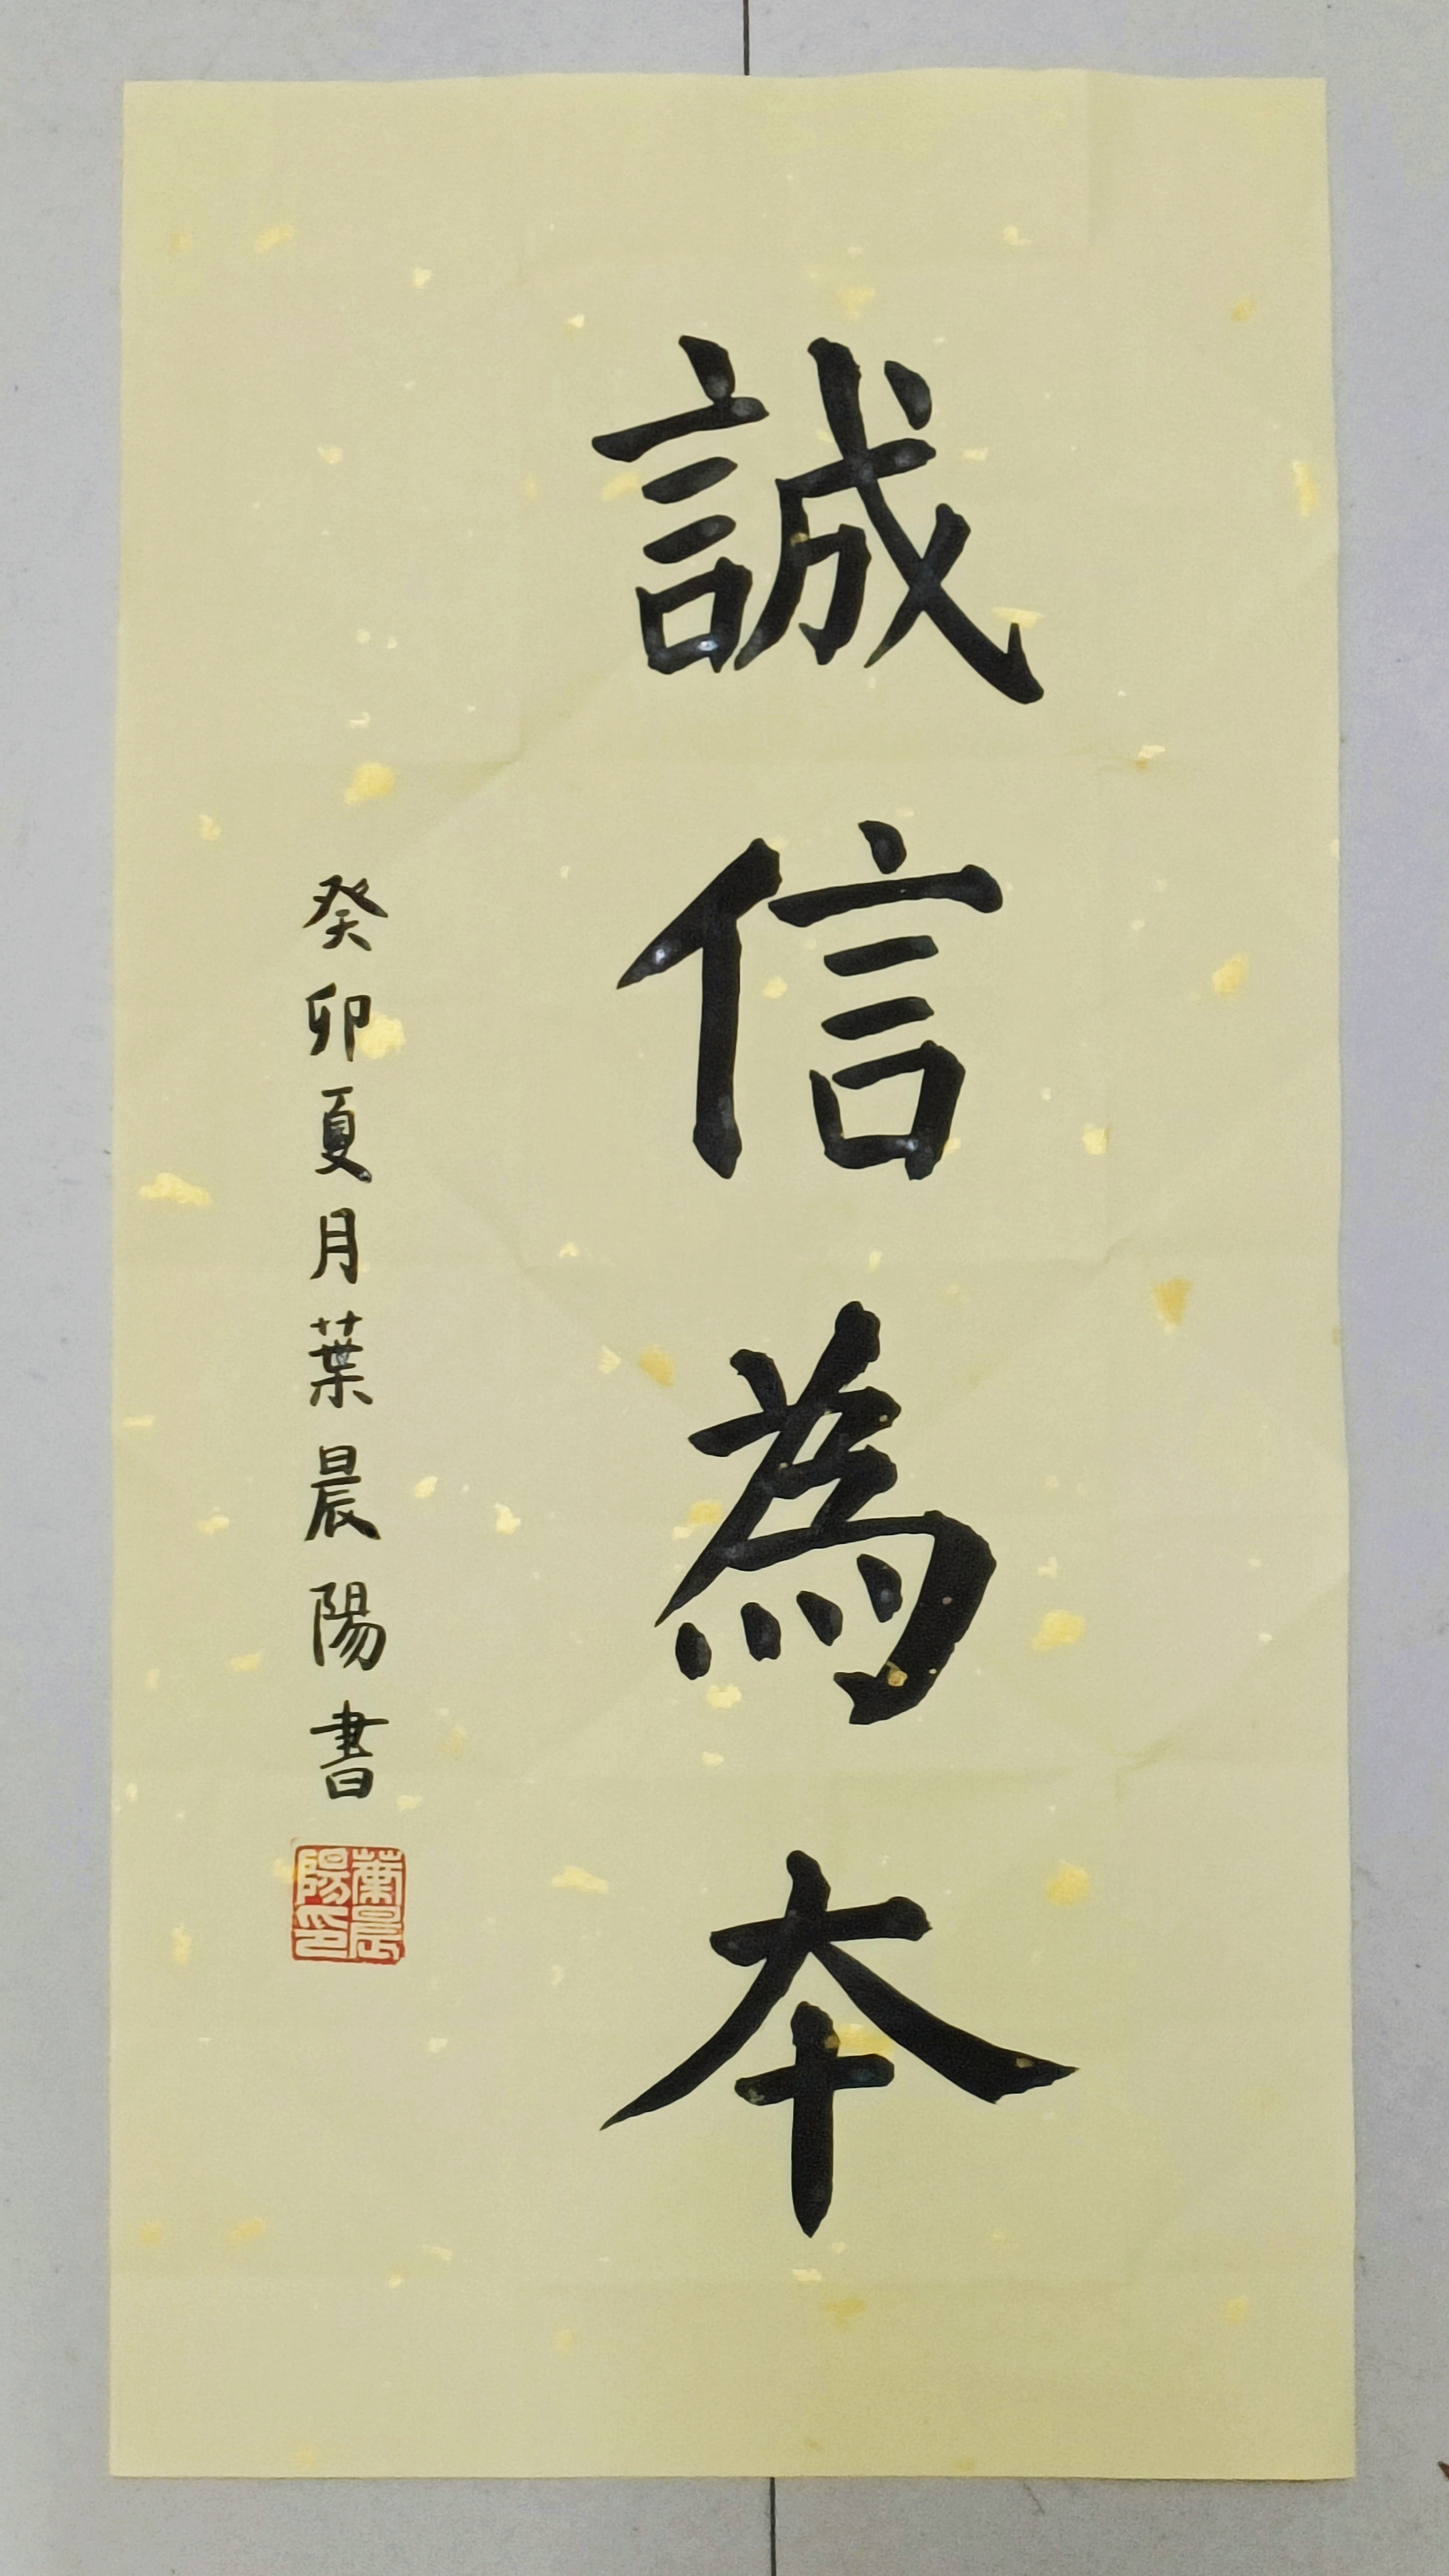 誠信為本
癸卯夏月葉晨陽書
葉晨陽印